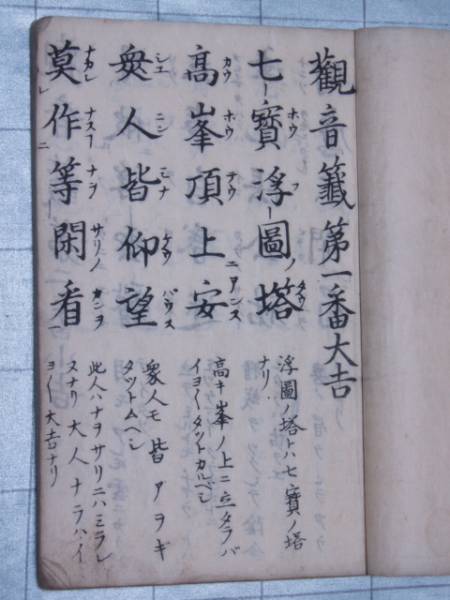 觀音籤第一番大吉
七寶浮圖塔
高峯頂上安
衆人皆仰望
莫作等閑看
浮圖ノ塔トハ七寶ノ塔
ナリ
高キ峯ノ上ニ立タラバ
イヨ〱タットカルベシ
衆人モ皆アヲギ
タットムヘシ
此人ハナヲサリニハミラレ
スナリ大人ナラハイ
ヨ〱大吉ナリ